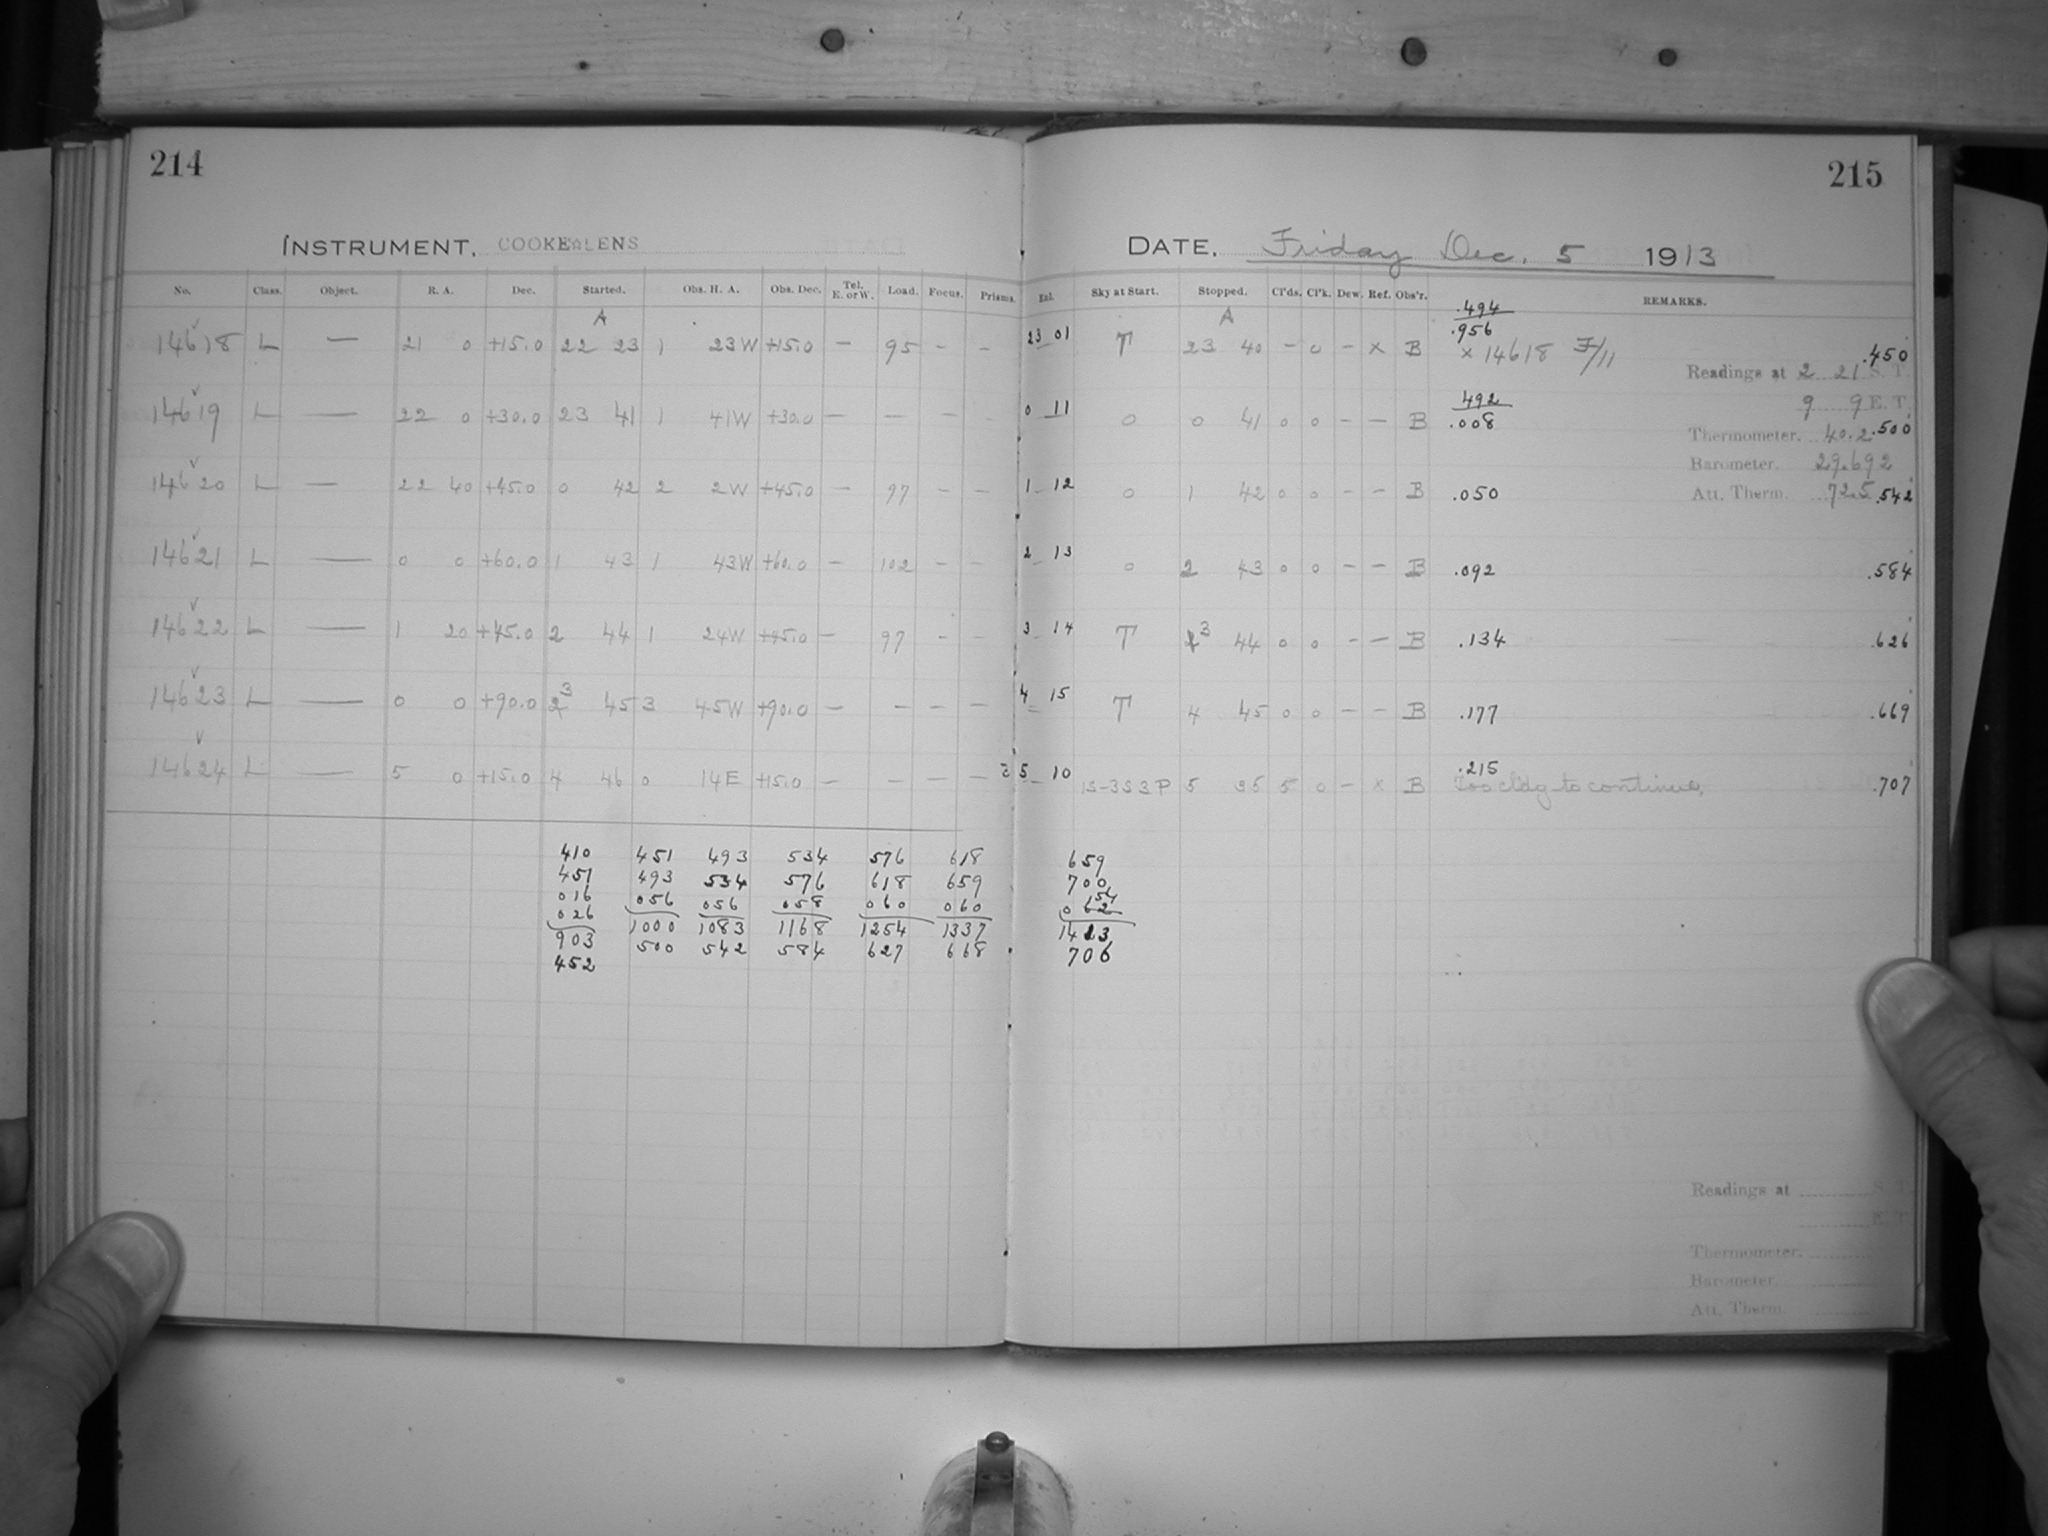 214
INSTRUMENT. COOKE LENS
No. Class. Object. R. A. Dec. Started. Obs. H. A. Obs. Dec. Tel. E. or W. Load. Focus. Prisms.
A
14618 L — 21 0 +15.0 22 23 1 23W +15.0 — 95 - -
14619 L — 22 0 +30.0 23 41 1 41W +30.0 — — - -
14620 L — 22 40 +45.0 0 42 2 2W +45.0 — 97 - -
14621 L — 0 0 +60.0 1 43 1 43W +60.0 — 102 - -
14622 L — 1 20 +45.0 2 44 1 24W +45.0 — 97 - -
14623 L — 0 0 +90.0 2 3 45 3 45W +90.0 — - - -
14624 L — 5 0 +15.0 4 46 0 14E +15.0 — - - -
410 451 493 534 576 618
451 493 534 576 618 659
016 056 056 058 060 060
026 1000 1083 1168 1254 1337
903 500 542 584 627 668
452
215
DATE. Friday Dec. 5 1913
Exl. Sky at Start. Stopped. Cl'ds. Cl'k. Dew. Ref. Obs'r. REMARKS.
A .494
23 01 T 23 40 - 0 - x B .956
x 14618 F/11 .450
Readings at 2 21 S. T.
9 9 E. T.
0 11 0 0 41 0 0 - - B 492
.008 .500
Thermometer. 40.2
Barometer. 29.692
1 12 0 1 42 0 0 - - B .050 Att. Therm. 72.5 .542
2 13 0 2 43 0 0 - - B .092 .584
3 14 T 3 44 0 0 - - B .134 .626
4 15 T 4 45 0 0 - - B .177 .669
5 10 1S-3S3P 5 35 5 0 - x B .215
Too cldg to continue, .707
659
700
154
062
1413
706
Readings at S. T.
E. T.
Thermometer.
Barometer.
Att. Therm.